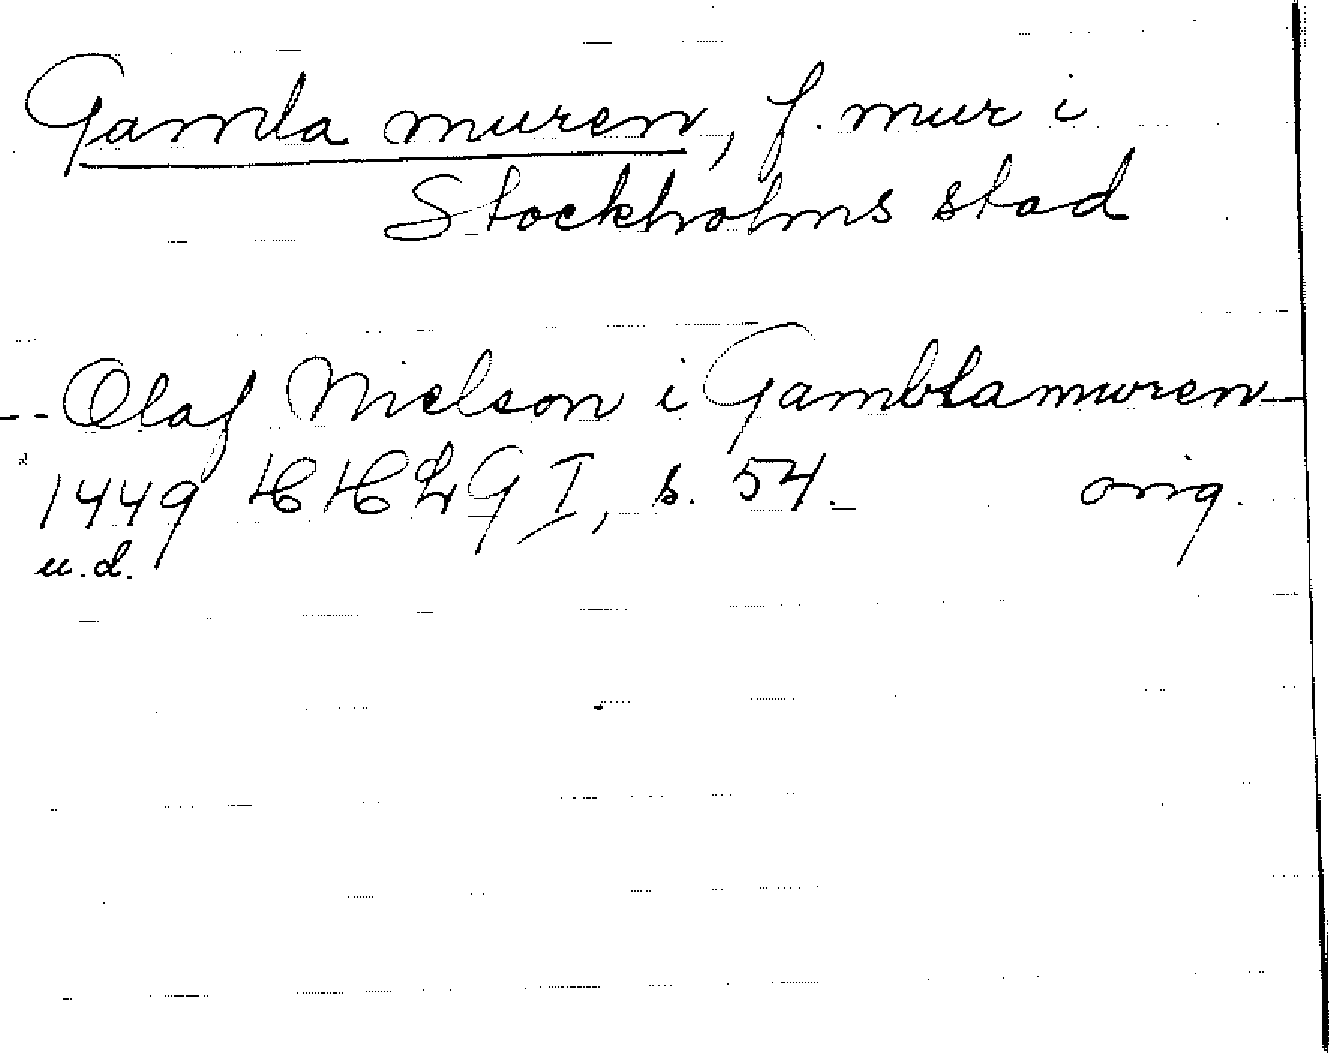 Gamla muren, f. mur i
Stockholms stad
-- Olaf Nielson i Gamblamuren -
1449 HHLG I, s. 54. orig.
u.d.